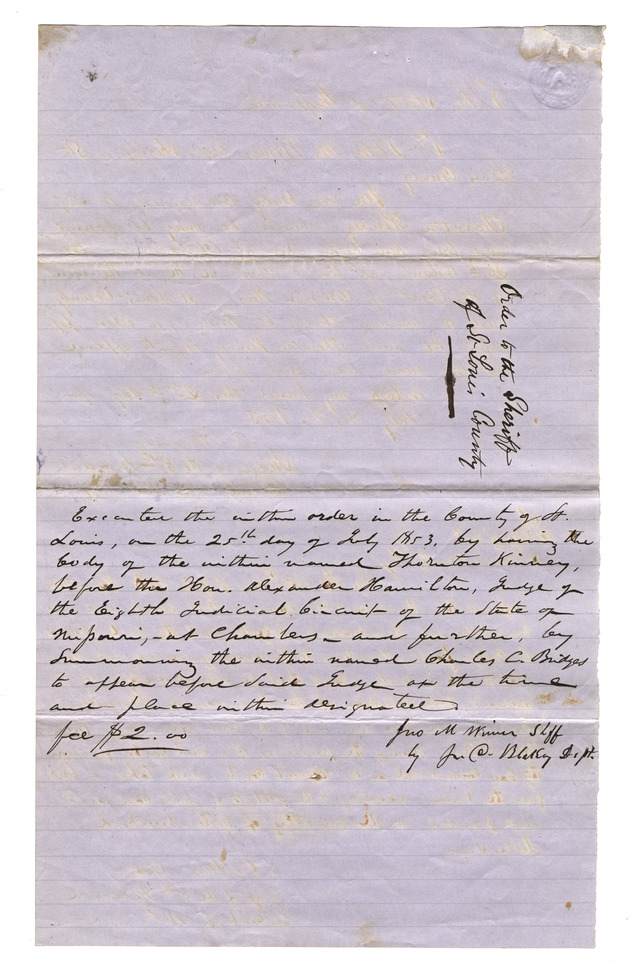 Order to the Sheriff
of St Louis County
Executed the within order in the County of St.
Louis, on the 25th day of July 1853, by having the
body of the within named Thornton Kinney,
before the Hon. Alexander Hamilton, Judge of
the Eighth Judicial Circuit of the State of
Missouri, - at Chambers - and further, by
Summoning the within named Charles C. Bridges
to appear before said Judge at the time
and place within designated
fee $2.00
Jno M Wimer Shff
by Jn C. Blakey Dept.